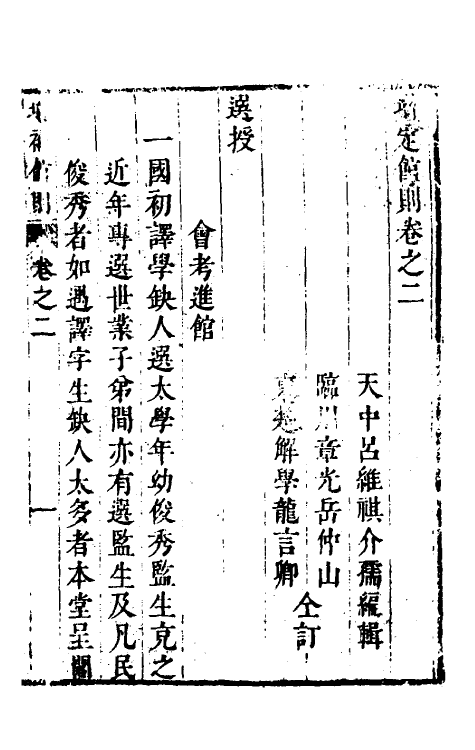 增定館則卷之二
天中呂維祺介孺編輯
臨川章光岳仲山
東越解學龍言卿
仝訂
選授
會考進館
一國初譯學缺人選太學年幼俊秀監生充之
近年專選世業子弟間亦有選監生及凡民
俊秀者如遇譯字生缺人太多者本堂呈閣
館則 卷之二 一